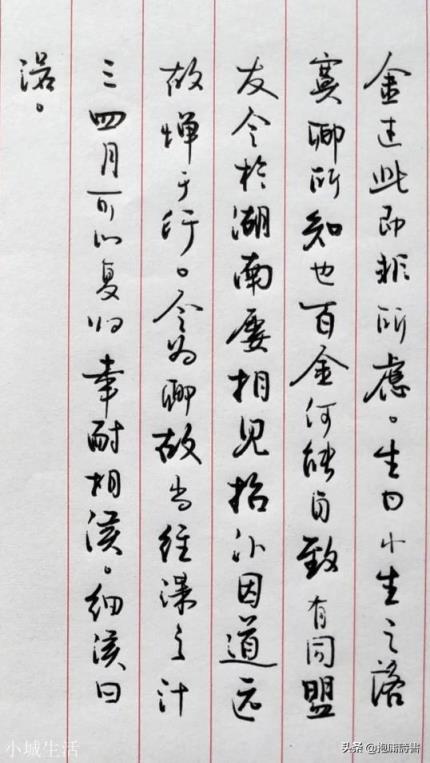 金过此即非所虑。生曰小生之落
寞卿所知也百金何能自致有同盟
友令於湖南屡相见招仆因道远
故惮于行。今为卿故当往谋之计
三四月可以复归幸耐相候。细侯曰
诺。
小城生活
头条 @抱啸詩書